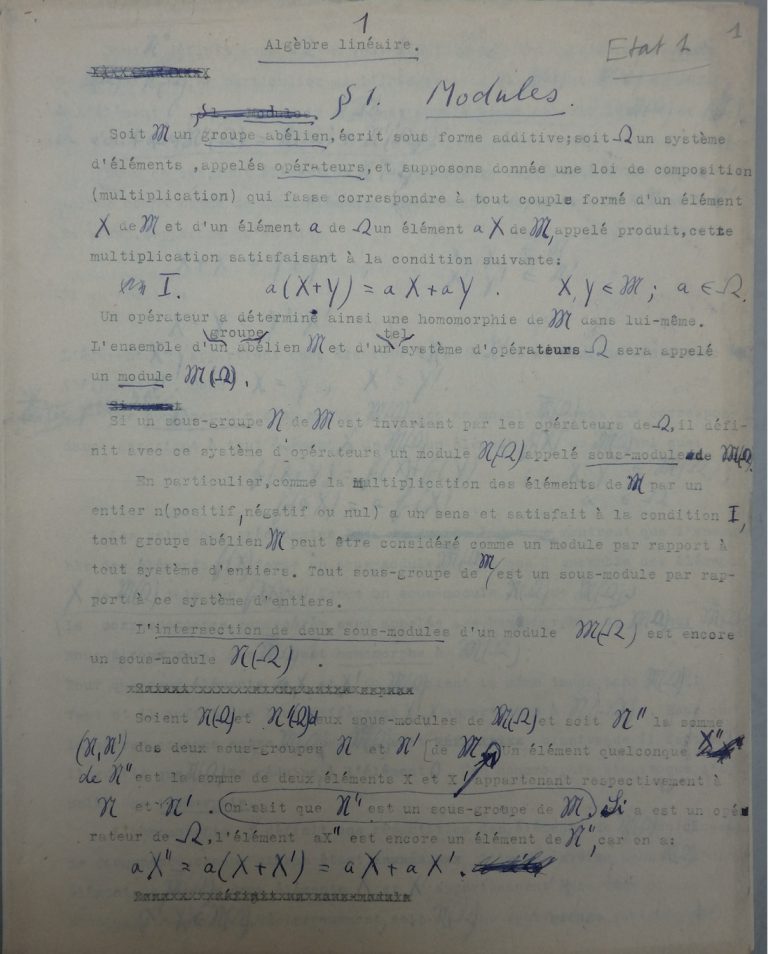 1
1
Algèbre linéaire.
Etat 1
§1. Modules.
§ 1. Modules.
Soit M un groupe abélien, écrit sous forme additive; soit Ω un système
d'éléments, appelés opérateurs, et supposons donnée une loi de composition
(multiplication) qui fasse correspondre à tout couple formé d'un élément
X de M et d'un élément a de Ω un élément a X de M, appelé produit, cette
multiplication satisfaisant à la condition suivante:
I. a(X+Y) = aX + aY . X, Y ∈ M ; a ∈ Ω.
Un opérateur a détermine ainsi une homomorphie de M dans lui-même.
groupe tel
L'ensemble d'un abélien M et d'un système d'opérateurs Ω sera appelé
un module M(Ω).
Si un sous-groupe N de M est invariant par les opérateurs de Ω, il défi-
nit avec ce système d'opérateurs un module N(Ω) appelé sous-module de M(Ω).
En particulier, comme la multiplication des éléments de M par un
entier n(positif, négatif ou nul) a un sens et satisfait à la condition I,
tout groupe abélien M peut être considéré comme un module par rapport à
tout système d'entiers. Tout sous-groupe de M est un sous-module par rap-
port à ce système d'entiers.
L'intersection de deux sous-modules d'un module M(Ω) est encore
un sous-module N(Ω) .
Soient N(Ω) et N'(Ω) deux sous-modules de M(Ω) et soit N" la somme
(N, N') des deux sous-groupes N et N' [de M. Un élément quelconque X"
de N" est la somme de deux éléments X et X' appartenant respectivement à
N et N' . On sait que N" est un sous-groupe de M. Si a est un opé-
rateur de Ω, l'élément aX" est encore un élément de N", car on a:
aX" = a(X+X') = aX + aX'.